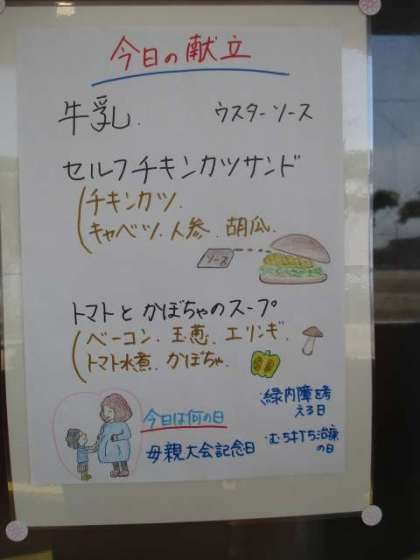 今日の献立
牛乳. ウスターソース
セルフチキンカツサンド
チキンカツ.
キャベツ.人参.胡瓜.
ソース
トマトとかぼちゃのスープ
ベーコン.玉葱.エリンギ.
トマト水煮.かぼちゃ.
今日は何の日
緑内障を考
える日
母親大会記念日
むち打ち治療
の日